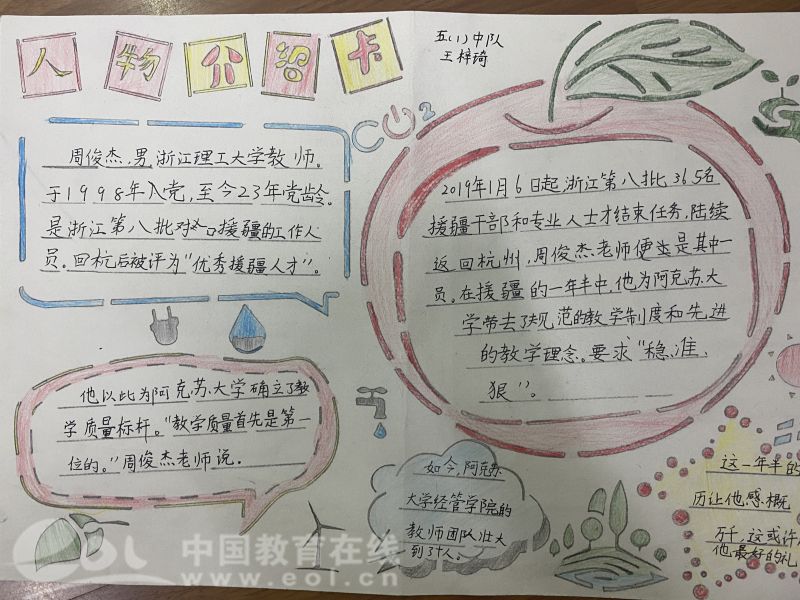 人物介绍卡
五(1)中队
王梓琦
周俊杰,男,浙江理工大学教师。
于1998年入党,至今23年党龄。
是浙江第八批对口援疆的工作人
员。回杭后被评为“优秀援疆人才”。
CO2
2019年1月6日起,浙江第八批365名
援疆干部和专业人士才结束任务,陆续
返回杭州,周俊杰老师便是其中一
员。在援疆的一年半中,他为阿克苏大
学带去了规范的教学制度和先进
的教学理念。要求“稳、准、
狠”。
他以此为阿克苏大学确立了教
学质量标杆。“教学质量首先是第一
位的。”周俊杰老师说.
如今,阿克苏
大学经管学院的
教师团队壮大
到了十人。
这一年半的
历让他感概
万千,这或许
他最好的礼
中国教育在线
www.eol.cn